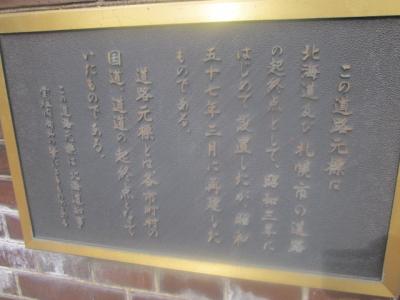 この道路元標は
北海道及び札幌市の道路
の起終点として、昭和三年に
はじめて設置したが昭和
五十七年三月に再建した
ものである。
道路元標とは各市町村の
国道、道道の起終点となって
いたものである。
この道路元標は北海道知事